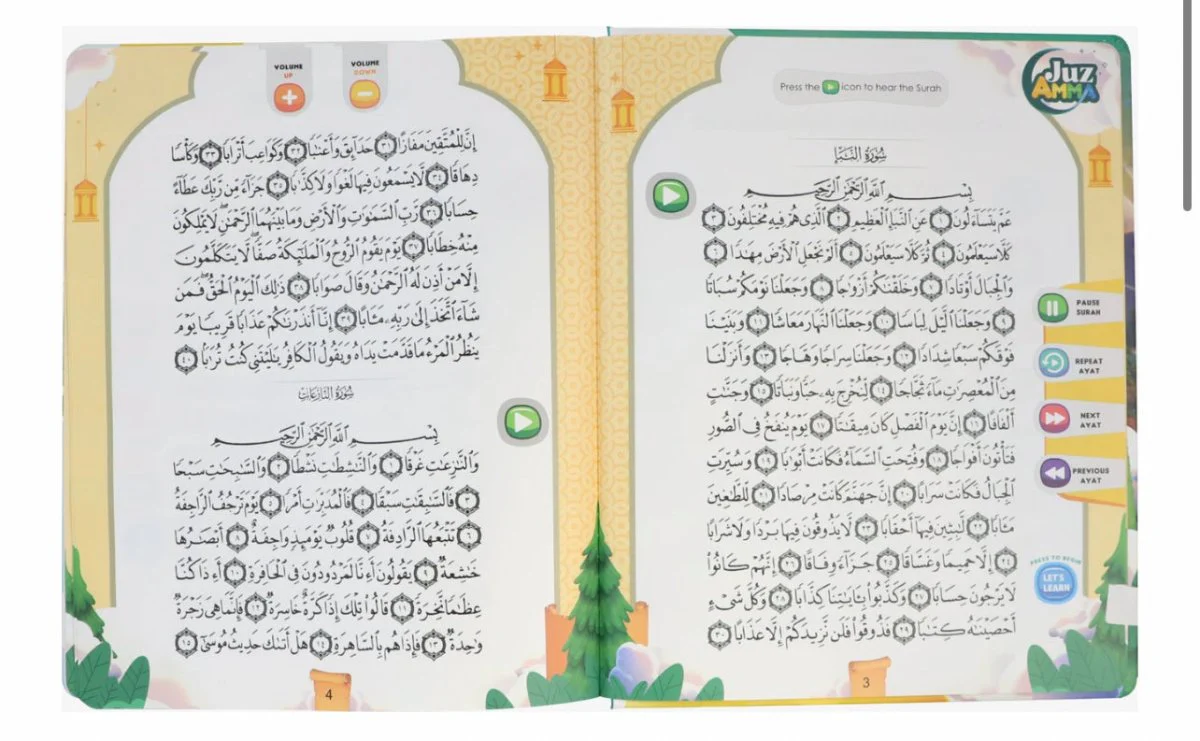 Press the icon to hear the Surah
Juz
AMMA
سُورَةُ النَّبَإِ
بِسْمِ اللَّهِ الرَّحْمَٰنِ الرَّحِيمِ
عَمَّ يَتَسَاءَلُونَ ١ عَنِ النَّبَإِ الْعَظِيمِ ٢ الَّذِي هُمْ فِيهِ مُخْتَلِفُونَ ٣
كَلَّا سَيَعْلَمُونَ ٤ ثُمَّ كَلَّا سَيَعْلَمُونَ ٥ أَلَمْ نَجْعَلِ الْأَرْضَ مِهَٰدًا ٦
وَالْجِبَالَ أَوْتَادًا ٧ وَخَلَقْنَٰكُمْ أَزْوَٰجًا ٨ وَجَعَلْنَا نَوْمَكُمْ سُبَاتًا
٩ وَجَعَلْنَا الَّيْلَ لِبَاسًا ١٠ وَجَعَلْنَا النَّهَارَ مَعَاشًا ١١ وَبَنَيْنَا
فَوْقَكُمْ سَبْعًا شِدَادًا ١٢ وَجَعَلْنَا سِرَاجًا وَهَّاجًا ١٣ وَأَنزَلْنَا
مِنَ الْمُعْصِرَٰتِ مَاءً ثَجَّاجًا ١٤ لِّنُخْرِجَ بِهِ حَبًّا وَنَبَاتًا ١٥ وَجَنَّٰتٍ
أَلْفَافًا ١٦ إِنَّ يَوْمَ الْفَصْلِ كَانَ مِيقَٰتًا ١٧ يَوْمَ يُنفَخُ فِي الصُّورِ
فَتَأْتُونَ أَفْوَاجًا ١٨ وَفُتِحَتِ السَّمَاءُ فَكَانَتْ أَبْوَٰبًا ١٩ وَسُيِّرَتِ
الْجِبَالُ فَكَانَتْ سَرَابًا ٢٠ إِنَّ جَهَنَّمَ كَانَتْ مِرْصَادًا ٢١ لِّلطَّٰغِينَ
مَـَٔابًا ٢٢ لَّٰبِثِينَ فِيهَا أَحْقَابًا ٢٣ لَّا يَذُوقُونَ فِيهَا بَرْدًا وَلَا شَرَابًا
٢٤ إِلَّا حَمِيمًا وَغَسَّاقًا ٢٥ جَزَاءً وِفَاقًا ٢٦ إِنَّهُمْ كَانُوا
لَا يَرْجُونَ حِسَابًا ٢٧ وَكَذَّبُوا بِـَٔايَٰتِنَا كِذَّابًا ٢٨ وَكُلَّ شَيْءٍ
أَحْصَيْنَٰهُ كِتَٰبًا ٢٩ فَذُوقُوا فَلَن نَّزِيدَكُمْ إِلَّا عَذَابًا ٣٠
PAUSE
SURAH
REPEAT
AYAT
NEXT
AYAT
PREVIOUS
AYAT
PRESS TO BEGIN
LET'S
LEARN
3
VOLUME
UP
VOLUME
DOWN
إِنَّ لِلْمُتَّقِينَ مَفَازًا ٣١ حَدَائِقَ وَأَعْنَٰبًا ٣٢ وَكَوَاعِبَ أَتْرَابًا ٣٣ وَكَأْسًا
دِهَاقًا ٣٤ لَّا يَسْمَعُونَ فِيهَا لَغْوًا وَلَا كِذَّٰبًا ٣٥ جَزَاءً مِّن رَّبِّكَ عَطَاءً
حِسَابًا ٣٦ رَّبِّ السَّمَٰوَٰتِ وَالْأَرْضِ وَمَا بَيْنَهُمَا الرَّحْمَٰنِ لَا يَمْلِكُونَ
مِنْهُ خِطَابًا ٣٧ يَوْمَ يَقُومُ الرُّوحُ وَالْمَلَٰئِكَةُ صَفًّا لَّا يَتَكَلَّمُونَ
إِلَّا مَنْ أَذِنَ لَهُ الرَّحْمَٰنُ وَقَالَ صَوَابًا ٣٨ ذَٰلِكَ الْيَوْمُ الْحَقُّ فَمَن
شَاءَ اتَّخَذَ إِلَىٰ رَبِّهِ مَـَٔابًا ٣٩ إِنَّا أَنذَرْنَٰكُمْ عَذَابًا قَرِيبًا يَوْمَ
يَنظُرُ الْمَرْءُ مَا قَدَّمَتْ يَدَاهُ وَيَقُولُ الْكَافِرُ يَٰلَيْتَنِي كُنتُ تُرَٰبًا ٤٠
سُورَةُ النَّازِعَاتِ
بِسْمِ اللَّهِ الرَّحْمَٰنِ الرَّحِيمِ
وَالنَّٰزِعَٰتِ غَرْقًا ١ وَالنَّٰشِطَٰتِ نَشْطًا ٢ وَالسَّٰبِحَٰتِ سَبْحًا
٣ فَالسَّٰبِقَٰتِ سَبْقًا ٤ فَالْمُدَبِّرَٰتِ أَمْرًا ٥ يَوْمَ تَرْجُفُ الرَّاجِفَةُ
٦ تَتْبَعُهَا الرَّادِفَةُ ٧ قُلُوبٌ يَوْمَئِذٍ وَاجِفَةٌ ٨ أَبْصَٰرُهَا
خَٰشِعَةٌ ٩ يَقُولُونَ أَءِنَّا لَمَرْدُودُونَ فِي الْحَافِرَةِ ١٠ أَءِذَا كُنَّا
عِظَٰمًا نَّخِرَةً ١١ قَالُوا تِلْكَ إِذًا كَرَّةٌ خَاسِرَةٌ ١٢ فَإِنَّمَا هِيَ زَجْرَةٌ
وَٰحِدَةٌ ١٣ فَإِذَا هُم بِالسَّاهِرَةِ ١٤ هَلْ أَتَىٰكَ حَدِيثُ مُوسَىٰ ١٥
4